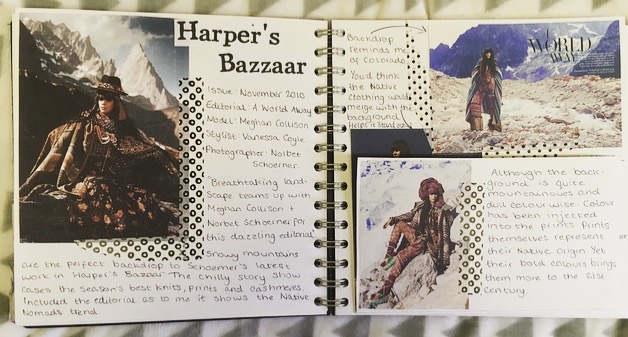 Harper's
Bazzaar
Issue: November 2010
Editorial: A World Away
Model: Meghan Collison
Stylist: Vanessa Coyle
Photographer: Norbet
Schoerner.
"Breathtaking land-
scape teams up with
Meghan Collison +
Norbet Schoerner for
this dazzling editorial"
Snowy mountains
are the perfect backdrop to Schoerner's latest
work in Harper's Bazaar. The chilly story show
cases the season's best knits, prints and cashmeres.
Included the editorial as to me it shows the Native
Nomads trend.
Backdrop
reminds me
of Colorado.
You'd think
the Native
Clothing would
merge with the
background
Helps it stand out
A
WORLD
AWAY
Although the back-
ground is quite
mountainoues and
dull colour wise. Colour
has been injected
into the prints. Prints
themselves represent
their Native Origin Yet
their bold colours brings
them more to the 21st
Century.